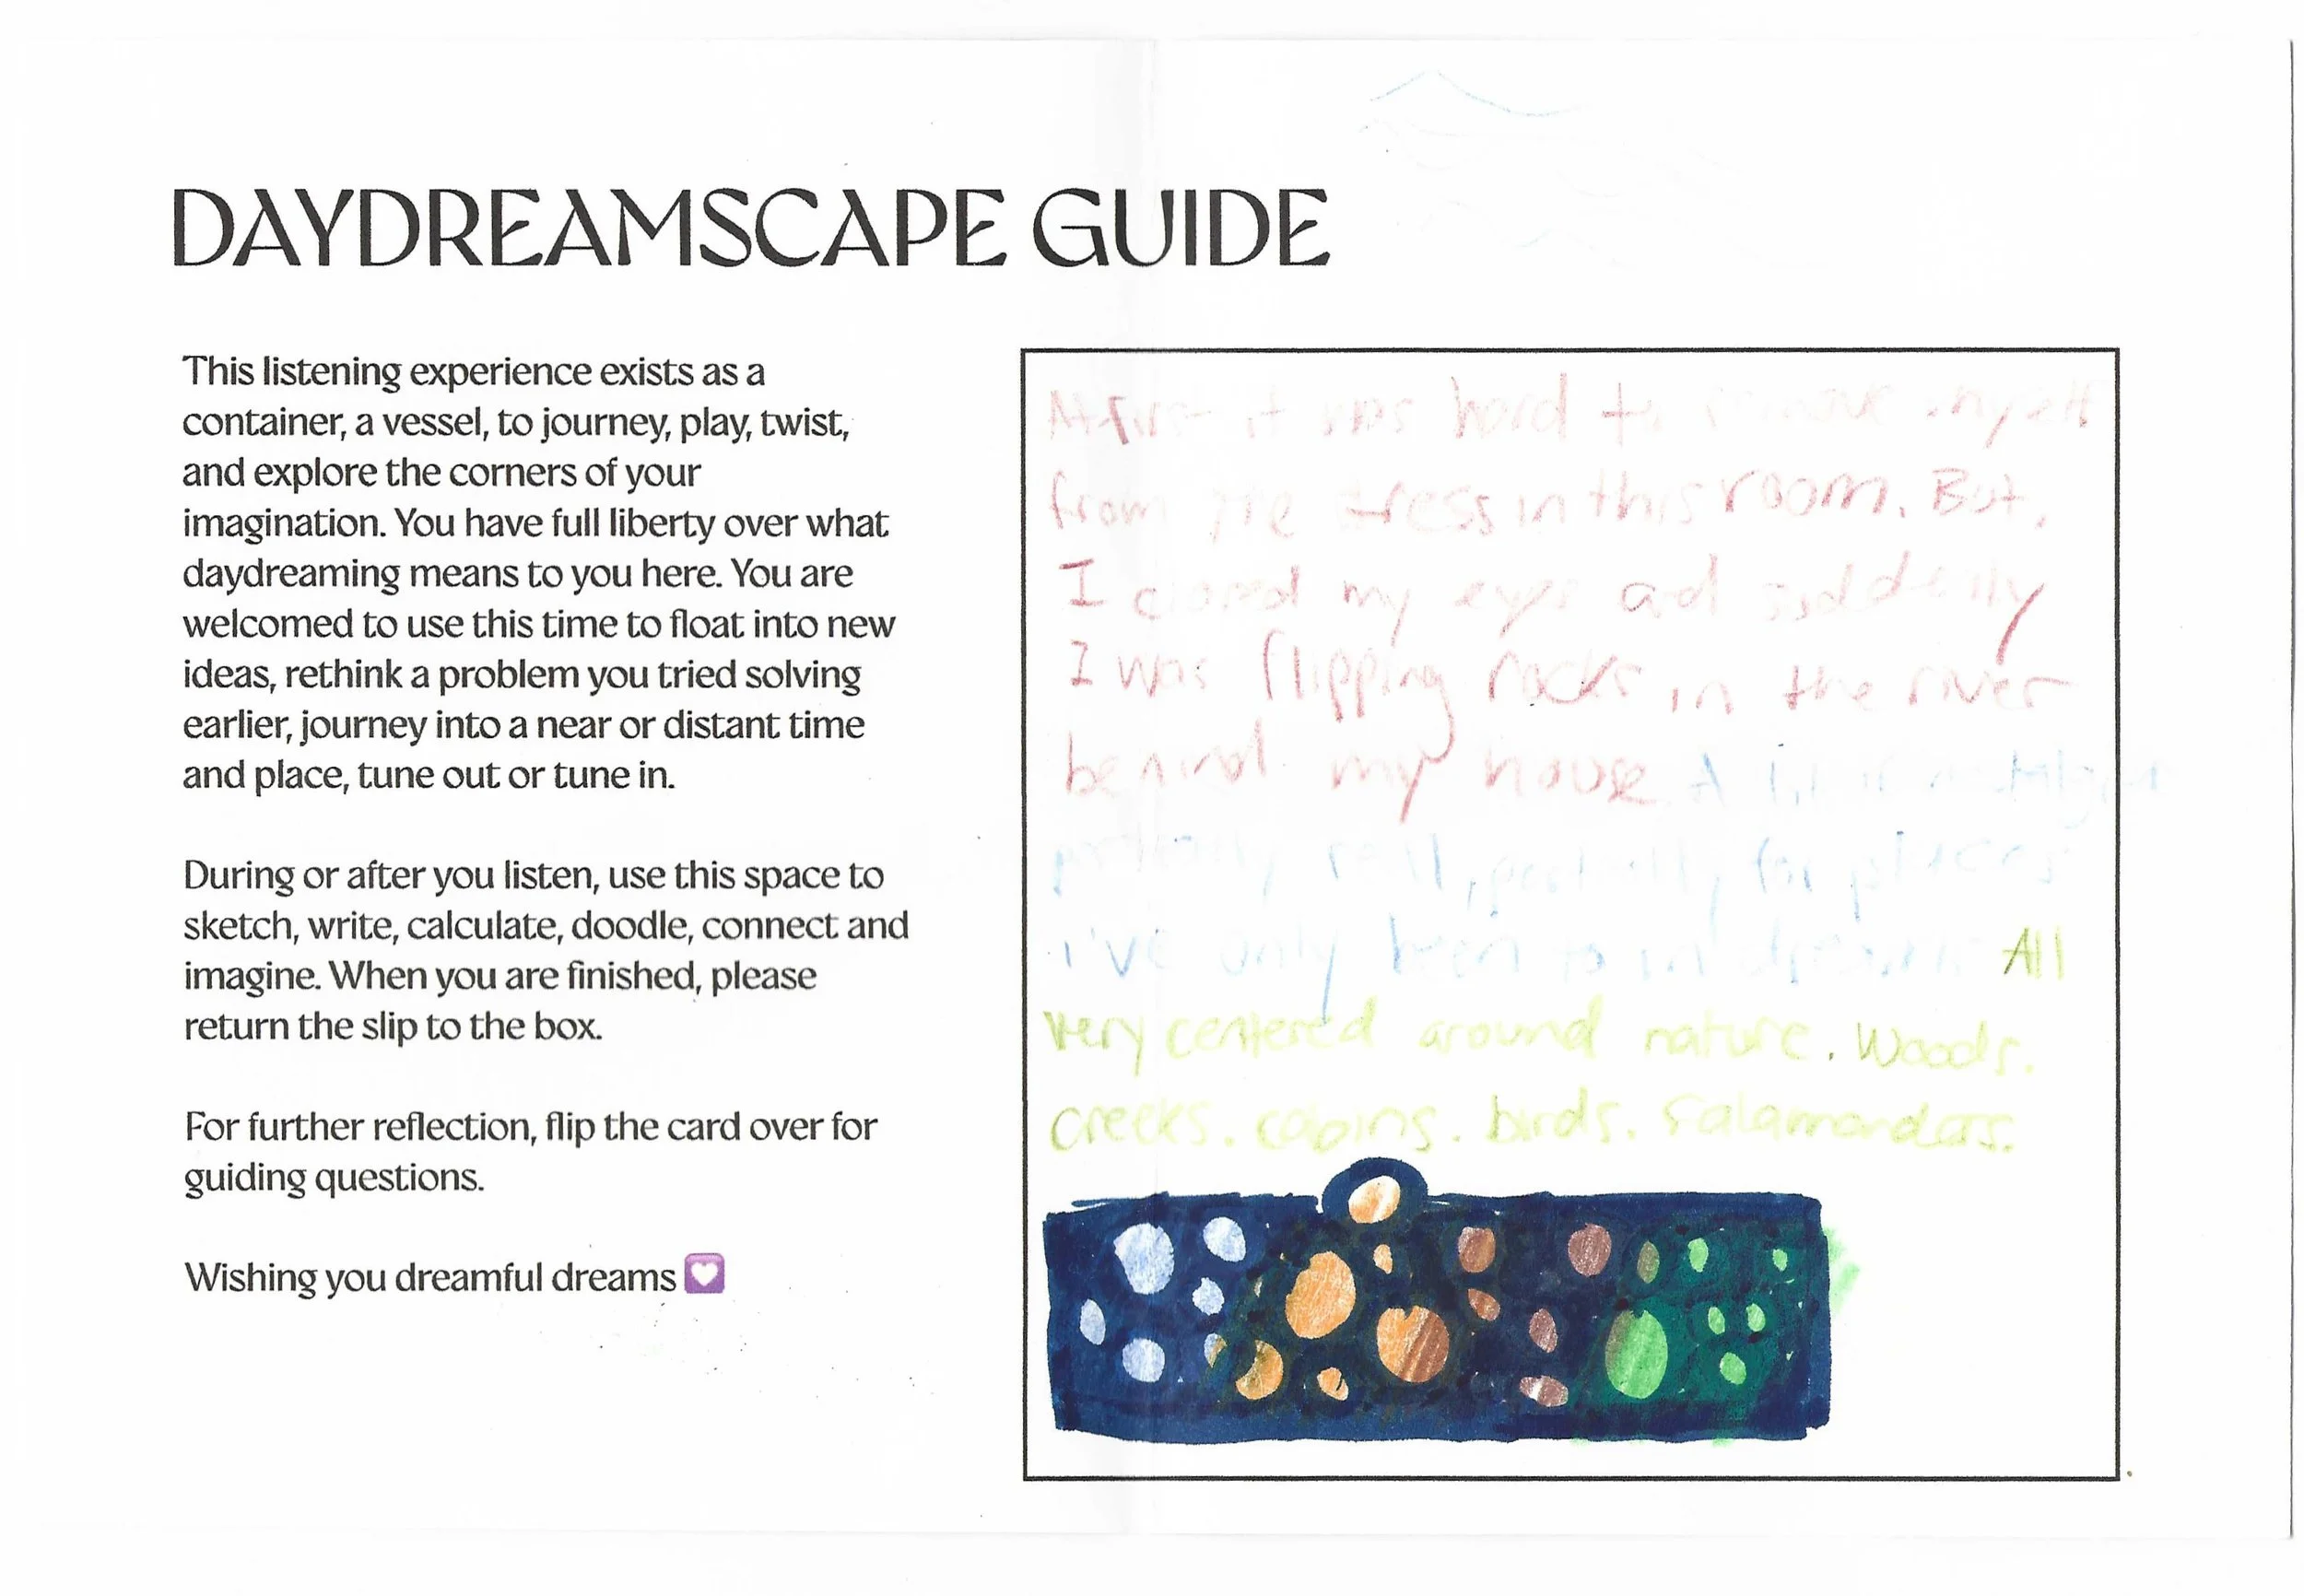 DAYDREAMSCAPE GUIDE
This listening experience exists as a
container, a vessel, to journey, play, twist,
and explore the corners of your
imagination. You have full liberty over what
daydreaming means to you here. You are
welcomed to use this time to float into new
ideas, rethink a problem you tried solving
earlier, journey into a near or distant time
and place, tune out or tune in.
During or after you listen, use this space to
sketch, write, calculate, doodle, connect and
imagine. When you are finished, please
return the slip to the box.
For further reflection, flip the card over for
guiding questions.
Wishing you dreamful dreams 💟
At first it was hard to remove myself
from the stress in this room. But,
I closed my eyes and suddenly
I was flipping rocks in the river
behind my house A
partially real, partially for places
i've only been to in dreams All
very centered around nature. Woods.
creeks. cabins. birds. Salamanders.